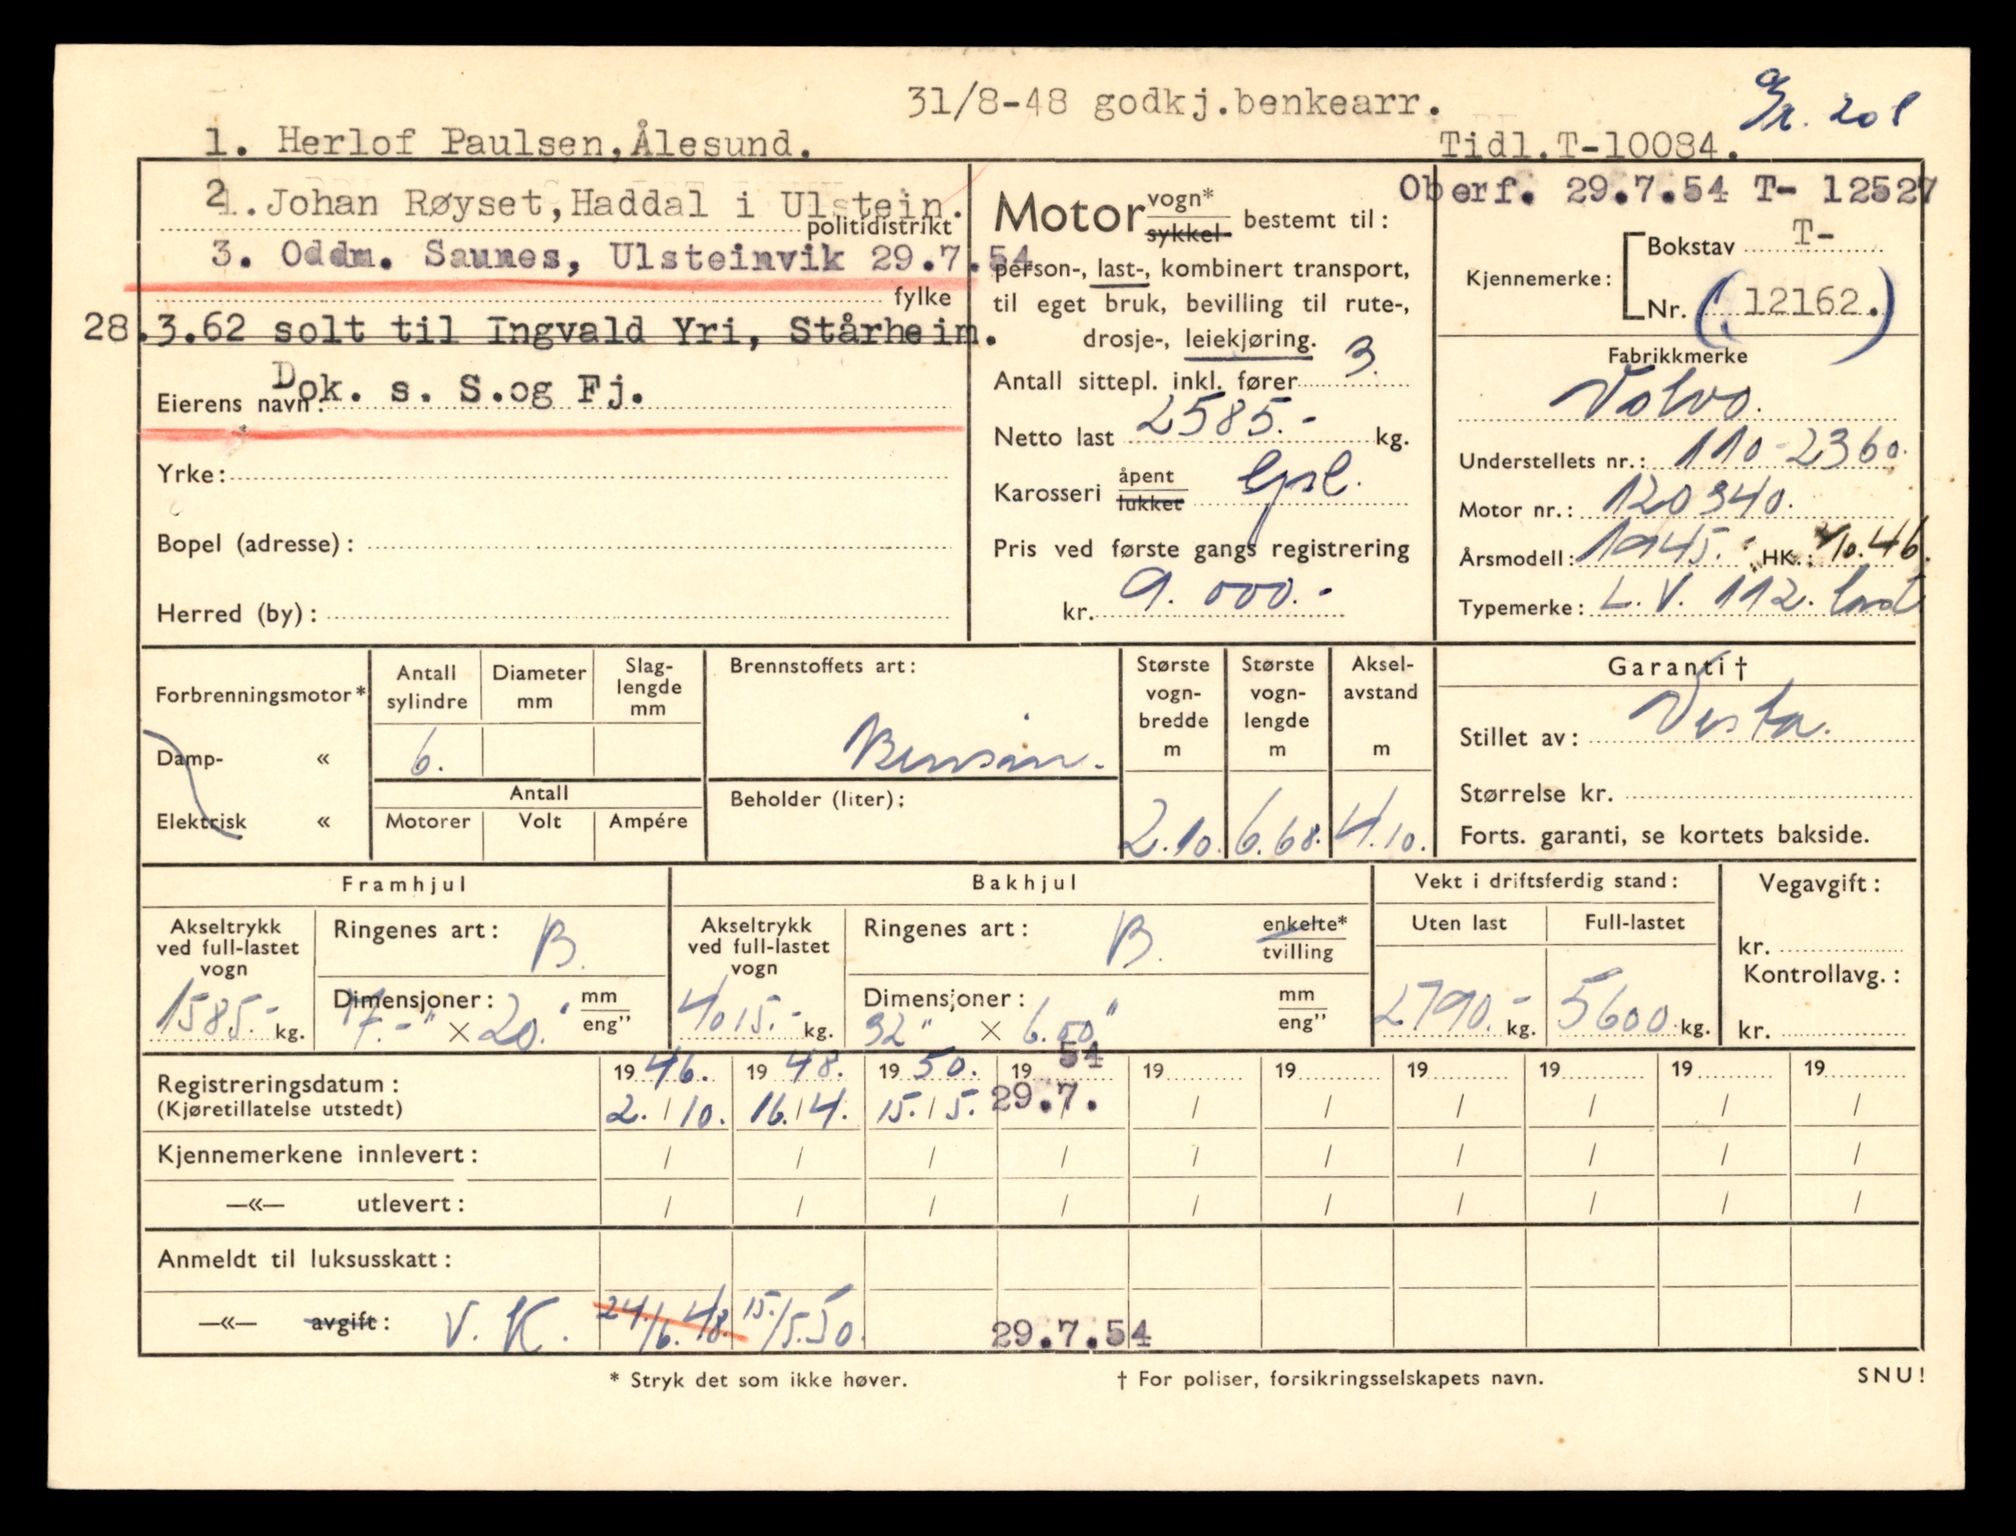 31/8-48 godkj.benkearr.
1. Herlof Paulsen, Ålesund.
Tidl.T-10084.
2. Johan Røyset, Haddal i Ulstein.
politidistrikt
3. Oddm. Saunes, Ulsteinvik 29.7.54
fylke
28.3.62 solt til Ingvald Yri, Stårheim.
Dok. s. S.og Fj.
Eierens navn:
Yrke:
Bopel (adresse):
Herred (by):
Motor vogn* sykkel bestemt til:
person-, last-, kombinert transport,
til eget bruk, bevilling til rute-,
drosje-, leiekjøring.
Antall sittepl. inkl. fører 3.
Netto last 2585.- kg.
Karosseri åpent lukket
Pris ved første gangs registrering
kr. 9.000.-
Oberf. 29.7.54 T- 12527
Kjennemerke: Bokstav T-
Nr. (12162.)
Fabrikkmerke
Volvo.
Understellets nr.: 110-2360.
Motor nr.: 120340.
Årsmodell: 1945. HK.: 2/10.46.
Typemerke: L.V. 112. last
Forbrenningsmotor*
Damp- «
Elektrisk «
Antall sylindre
6.
Diameter mm
Slag-lengde mm
Antall
Motorer Volt Ampére
Brennstoffets art:
Bensin.
Beholder (liter):
Største vogn-bredde m
2.10.
Største vogn-lengde m
6.68.
Aksel-avstand m
4.10.
Garanti †
Stillet av: Vesta.
Størrelse kr.
Forts. garanti, se kortets bakside.
Framhjul
Akseltrykk ved full-lastet vogn
1585.- kg.
Ringenes art: B.
Dimensjoner: mm eng"
7.-" × 20."
Bakhjul
Akseltrykk ved full-lastet vogn
4015.- kg.
Ringenes art: B. enkelte* tvilling
Dimensjoner: mm eng"
32" × 6.00"
Vekt i driftsferdig stand:
Uten last Full-lastet
2790.- kg. 5600 kg.
Vegavgift:
kr.
Kontrollavg.:
kr.
Registreringsdatum: 1946. 1948. 1950. 1954 19 19 19 19 19 19
(Kjøretillatelse utstedt) 2./10. 16./4. 15./5. 29.7. / / / / / /
Kjennemerkene innlevert: / / / / / / / / / /
—«— utlevert: / / / / / / / / / /
Anmeldt til luksusskatt:
—«— avgift: V. K. 24/6.48. 15/5.50. 29.7.54
* Stryk det som ikke høver.
† For poliser, forsikringsselskapets navn.
SNU!